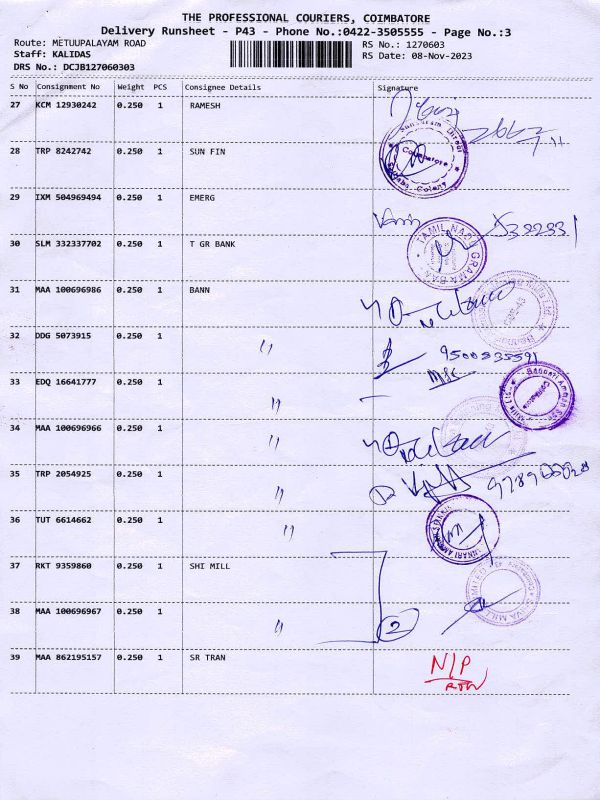 THE PROFESSIONAL COURIERS, COIMBATORE
Delivery Runsheet - P43 - Phone No.:0422-3505555 - Page No.:3
Route: METUUPALAYAM ROAD
Staff: KALIDAS
DRS No.: DCJB127060303
RS No.: 1270603
RS Date: 08-Nov-2023
S No Consignment No Weight PCS Consignee Details Signature
27 KCM 12930242 0.250 1 RAMESH
28 TRP 8242742 0.250 1 SUN FIN
29 IXM 504969494 0.250 1 EMERG
30 SLM 332337702 0.250 1 T GR BANK
31 MAA 100696986 0.250 1 BANN
32 DDG 5073915 0.250 1 〃 9500835591
33 EDQ 16641777 0.250 1 〃
34 MAA 100696966 0.250 1 〃
35 TRP 2054925 0.250 1 〃
36 TUT 6614662 0.250 1 〃
37 RKT 9359860 0.250 1 SHI MILL
38 MAA 100696967 0.250 1 〃 2
39 MAA 862195157 0.250 1 SR TRAN N/P
RTN